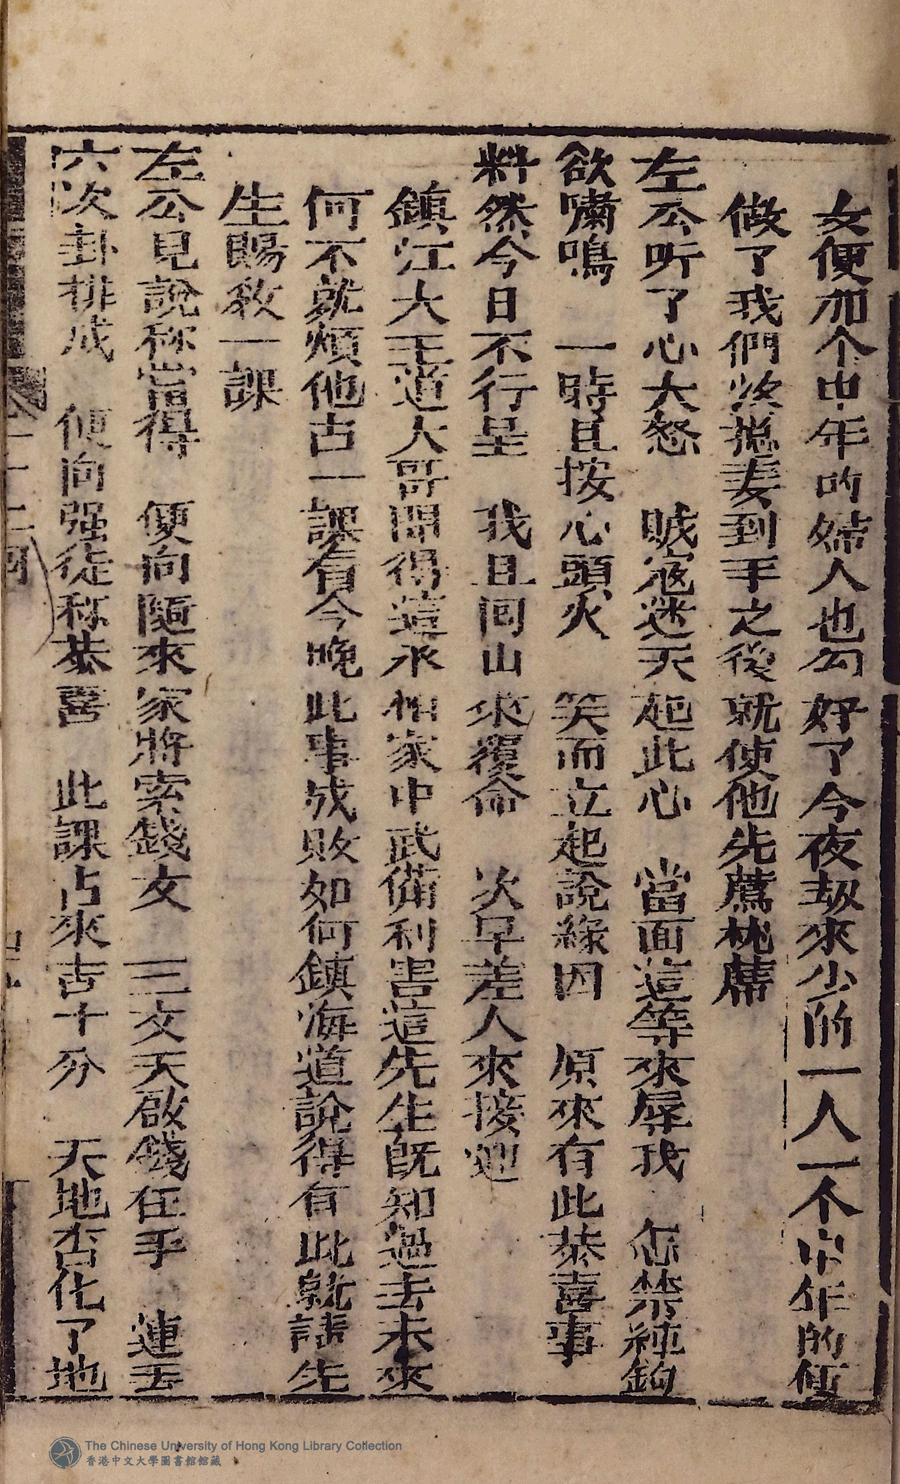 女便加个中年的婦人也勾好了今夜刼來少的一人一不中年的便
做了我們𢫬妻到手之後就使他先薦枕蓆
左公听了心大怒　賊寇迷天起此心　當面這等來辱我　怎禁純鈎
欲嘯鳴　一時且按心頭火　笑而立起說緣因　原來有此恭喜事
料然今日不行呈　我且囘山來覆命　次早差人來接迎
鎮江大王道大哥聞得這永　家中武備利害這先生旣知過去未來
何不就煩他占一課看今晚此事成敗如何鎮海道說得有此就請先
生賜敎一課
左公見說称當得　便向隨來家將索錢文　三文天啟錢在手　連丟
六次卦排成　便向强徒称恭喜　此課占來吉十分　天地否化了地
二十二囘
The Chinese University of Hong Kong Library Collection
香港中文大學圖書館館藏